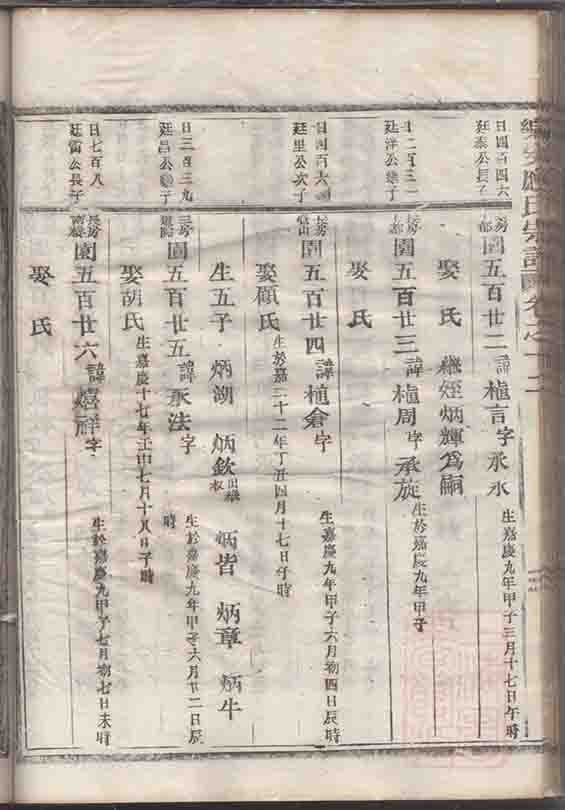 應氏宗譜卷之十二
日四百四六
廷泰公長子
園五百廿二 諱植言字永水
生嘉慶九年甲子三月十七日午時
娶 氏 繼姪炳輝爲嗣
廷洋公 子
園五百廿三 諱植周字承旋
生於嘉慶九年甲子
娶 氏
日四百六
廷里公次子
園五百廿四 諱植倉字
生嘉慶九年甲子六月初四日辰時
娶顧氏 生於嘉二十二年丁丑四月十七日午時
生五子 炳湖 炳欽 炳皆 炳章 炳牛
日三百三九
廷昌公 子
園五百廿五 諱永法字
生於嘉慶九年甲子六月廿二日辰時
娶胡氏 生嘉慶十七年壬申七月十八日子時
日七百八
廷雷公長子
長房
園五百廿六 諱 祥字
生於嘉慶九甲子七月初七日未時
娶 氏